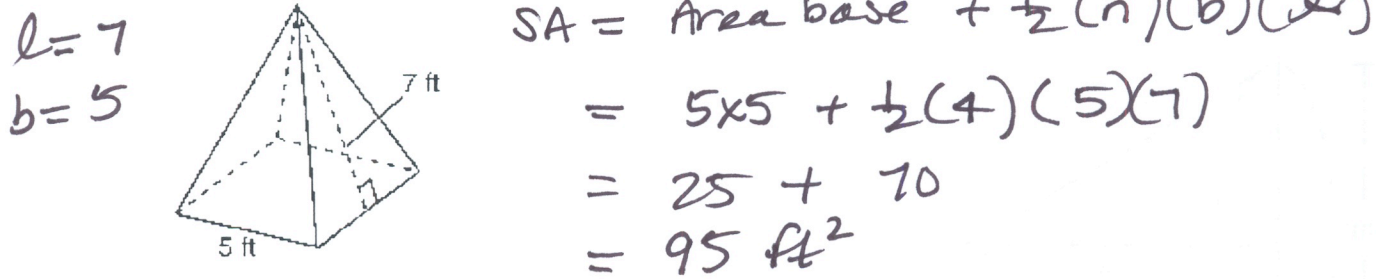 l = 7
b = 5
7 ft
5 ft
SA = Area base + ½ (n)(b)(l)
= 5x5 + ½ (4)(5)(7)
= 25 + 70
= 95 ft²